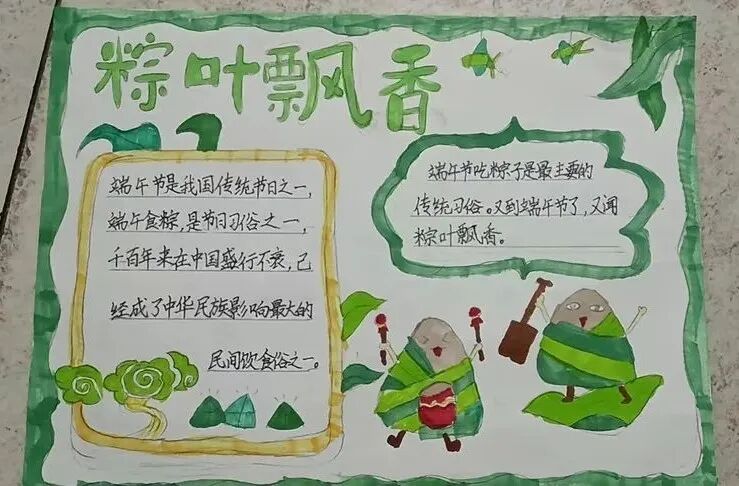 粽叶飘香
端午节是我国传统节日之一，
端午食粽，是节日习俗之一，
千百年来在中国盛行不衰，已
经成了中华民族影响最大的
民间饮食俗之一。
端午节吃粽子是最主要的
传统习俗。又到端午节了，又闻
粽叶飘香。